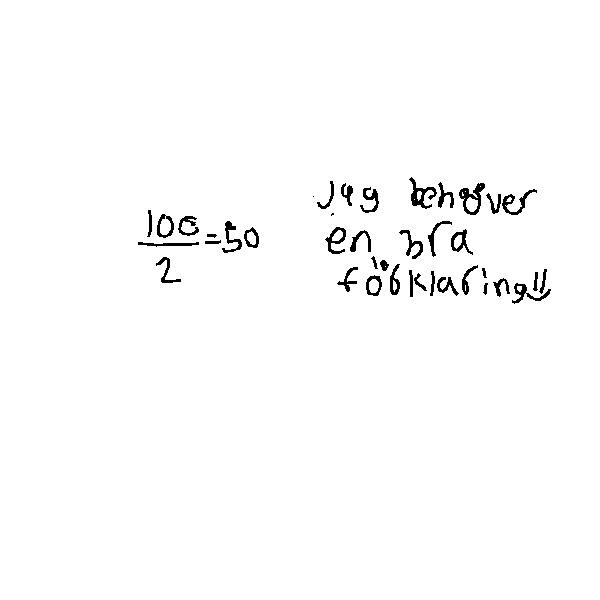 100/2=50
jag behöver
en bra
förklaring!!